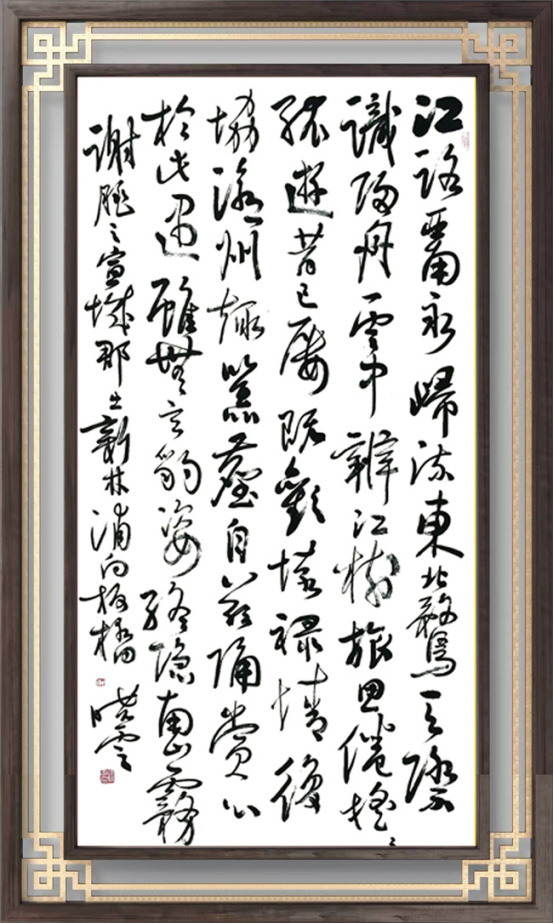 江路西南永歸流東北騖天際
識歸舟雲中辨江樹旅思倦搖々
孤遊昔已屢既歡懷祿情復
協滄州趣囂塵自茲隔賞心
於此遇雖無玄豹姿終隱南山霧
謝朓之宣城郡出新林浦向板橋 曉雲